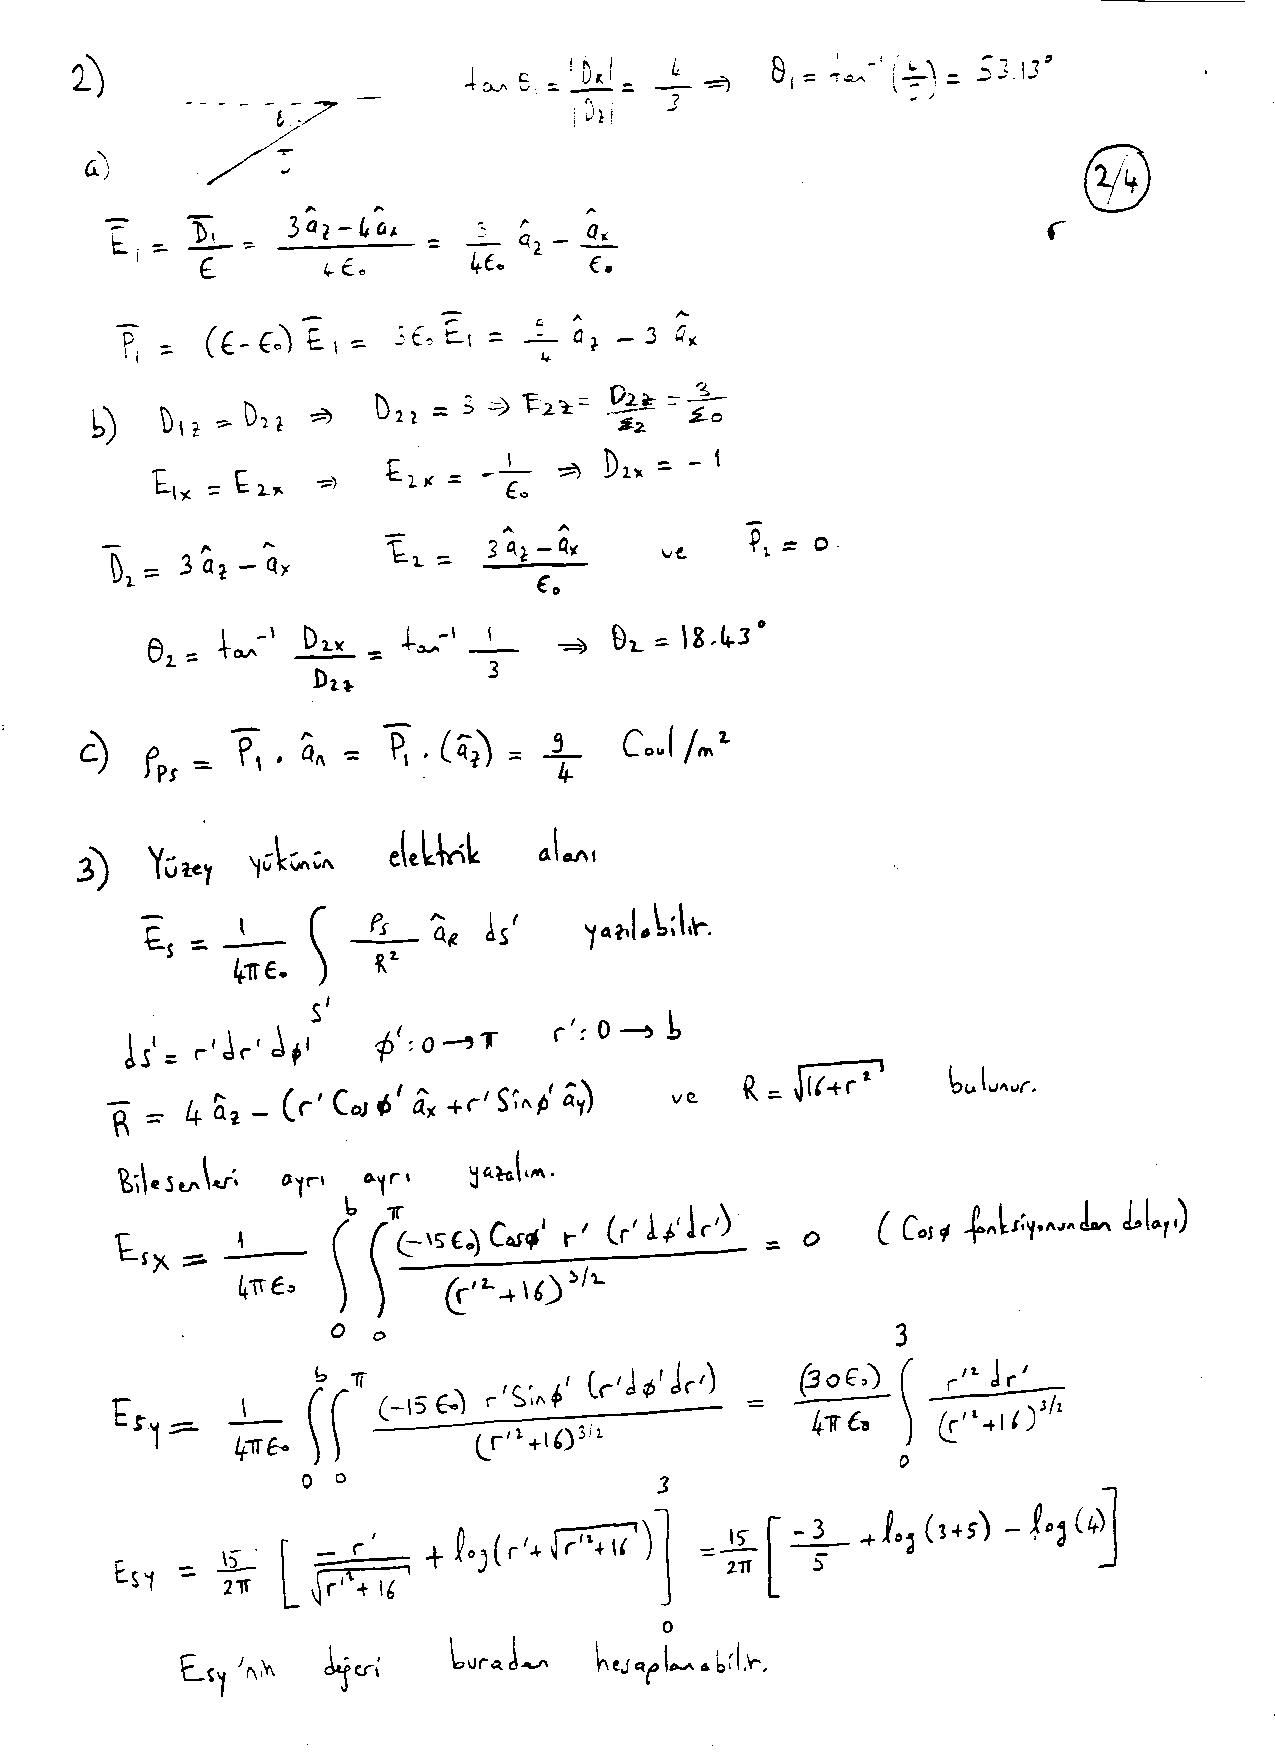 2) tan θ₁ = |Dx| / |Dz| = 4/3 ⇒ θ₁ = tan⁻¹(4/3) = 53.13°
a)
2/4
E̅₁ = D̅₁/ϵ = (3âz − 4âx)/4ϵ₀ = 3/4ϵ₀ âz − âx/ϵ₀
P̅₁ = (ϵ−ϵ₀) E̅₁ = 3ϵ₀ E̅₁ = 9/4 âz − 3 âx
b) D1z = D2z ⇒ D2z = 3 ⇒ E2z = D2z/ε2 = 3/ε0
E1x = E2x ⇒ E2x = −1/ϵ₀ ⇒ D2x = −1
D̅₂ = 3âz − âx E̅₂ = (3âz − âx)/ϵ₀ ve P̅₂ = 0.
θ₂ = tan⁻¹ D2x/D2z = tan⁻¹ 1/3 ⇒ θ₂ = 18.43°
c) ρps = P̅₁ . ân = P̅₁ . (âz) = 9/4 Coul/m²
3) Yüzey yükünün elektrik alanı
E̅s = 1/4πϵ₀ ∫S' ρs/R² âR ds' yazılabilir.
ds' = r'dr'dϕ' ϕ': 0→π r': 0→b
R̅ = 4âz − (r'Cosϕ' âx + r'Sinϕ' ây) ve R = √(16+r'²) bulunur.
Bileşenleri ayrı ayrı yazalım.
Esx = 1/4πϵ₀ ∫₀ᵇ ∫₀^π (−15ϵ₀) Cosϕ' r' (r'dϕ'dr') / (r'²+16)^3/2 = 0 (Cosϕ fonksiyonundan dolayı)
Esy = 1/4πϵ₀ ∫₀ᵇ ∫₀^π (−15ϵ₀) r'Sinϕ' (r'dϕ'dr') / (r'²+16)^3/2 = (30ϵ₀)/4πϵ₀ ∫₀³ r'²dr' / (r'²+16)^3/2
Esy = 15/2π [ −r'/√(r'²+16) + log(r'+√(r'²+16)) ]₀³ = 15/2π [ −3/5 + log(3+5) − log(4) ]
Esy'nin değeri buradan hesaplanabilir.